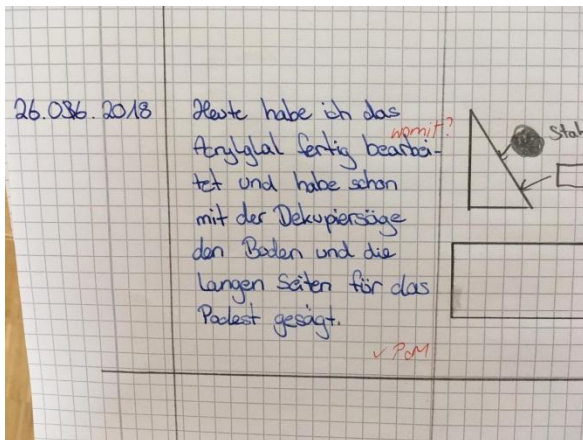 26.06.2018 Heute habe ich das
womit?
Acrylglal fertig bearbei-
tet und habe schon
mit der Dekupiersäge
den Boden und die
Langen Seiten für das
Podest gesägt.
Stah